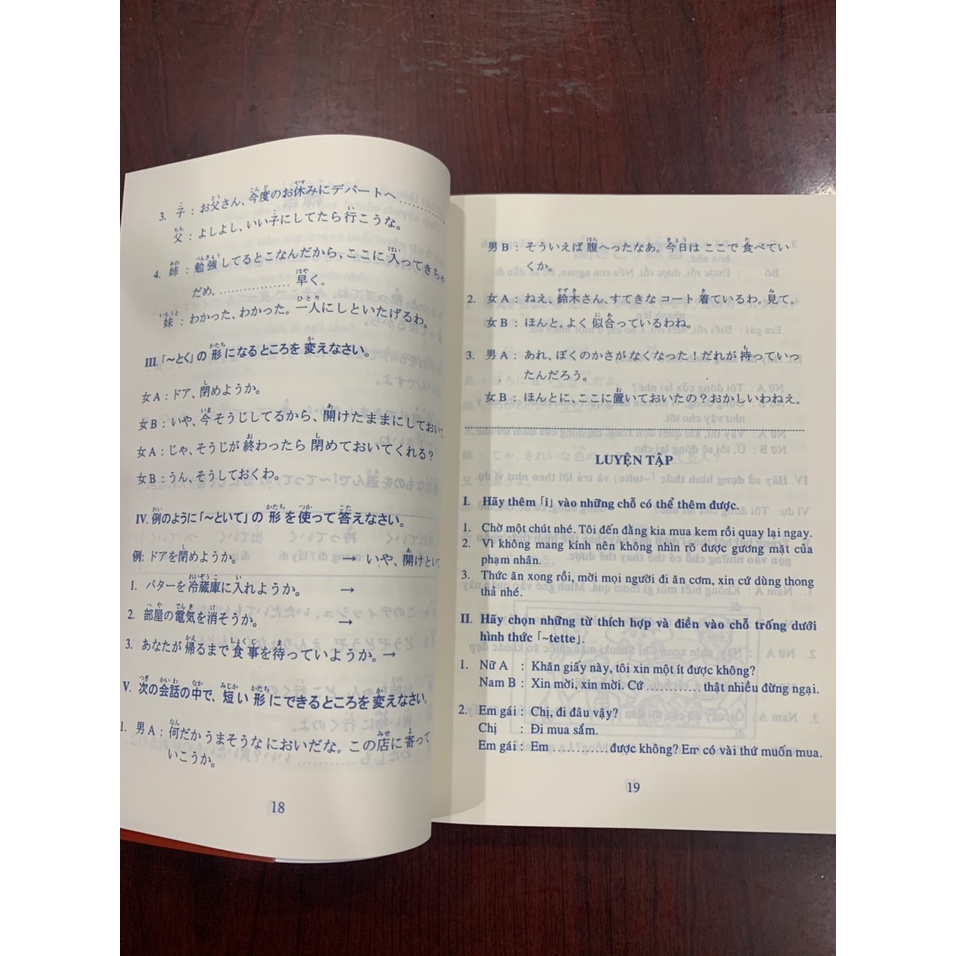 3. 子 : お父さん、今度のお休みにデパートへ……………
父 : よしよし、いい子にしてたら行こうな。
4. 姉 : 勉強してるとこなんだから、ここに入ってきちゃ
だめ。……………… 早く。
妹 : わかった、わかった。一人にしといたげるわ。
III. 「～とく」の形になるところを変えなさい。
女A : ドア、閉めようか。
女B : いや、今そうじしてるから、開けたままにしておいて、
女A : じゃ、そうじが終わったら閉めておいてくれる?
女B : うん、そうしておくわ。
IV. 例のように「～といて」の形を使って答えなさい。
例: ドアを閉めようか。 → いや、開けとい
1. バターを冷蔵庫に入れようか。 →
2. 部屋の電気を消そうか。 →
3. あなたが帰るまで食事を待っていようか。→
V. 次の会話の中で、短い形にできるところを変えなさい。
1. 男A : 何だかうまそうなにおいだな。この店に寄って
いこうか。
18
男B : そういえば腹へったなあ。今日はここで食べてい
くか。
2. 女A : ねえ、鈴木さん、すてきなコート着ているわ。見て。
女B : ほんと。よく似合っているわね。
3. 男A : あれ、ぼくのかさがなくなった!だれが持っていっ
たんだろう。
女B : ほんとに、ここに置いておいたの?おかしいわねえ。
LUYỆN TẬP
I. Hãy thêm「i」vào những chỗ có thể thêm được.
1. Chờ một chút nhé. Tôi đến đằng kia mua kem rồi quay lại ngay.
2. Vì không mang kính nên không nhìn rõ được gương mặt của
phạm nhân.
3. Thức ăn xong rồi, mời mọi người đi ăn cơm, xin cứ dùng thong
thả nhé.
II. Hãy chọn những từ thích hợp và điền vào chỗ trống dưới
hình thức「~tette」.
1. Nữ A : Khăn giấy này, tôi xin một ít được không?
Nam B : Xin mời, xin mời. Cứ ………… thật nhiều đừng ngại.
2. Em gái : Chị, đi đâu vậy?
Chị : Đi mua sắm.
Em gái : Em ………… được không? Em có vài thứ muốn mua.
19